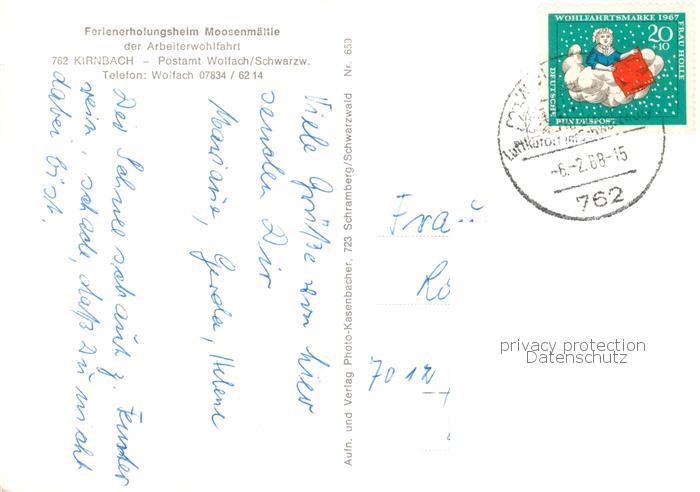 Ferienerholungsheim Moosenmättle
der Arbeiterwohlfahrt
762 KIRNBACH – Postamt Wolfach/Schwarzw.
Telefon: Wolfach 07834 / 62 14
Viele Grüße von hier
senden Dir
Marianne, Gerda, Helene
Der Schnee schaut z. Fenster
rein, schade, daß Du nicht
dabei bist.
Aufn. und Verlag Photo-Kasenbacher, 723 Schramberg/Schwarzwald Nr. 659
WOHLFAHRTSMARKE 1967
FRAU HOLLE
20
+10
DEUTSCHE
BUNDESPOST
Luftkurort
-6.-2.68-15
762
Frau
70 12
privacy protection
Datenschutz